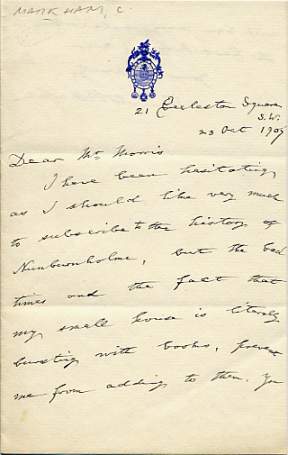 MARKHAM, C
21 Eccleston Square
S.W.
23 Oct 1909
Dear Mr Morris
I have been hesitating,
as I should like very much
to subscribe to the history of
Nunburnholme, but the bad
times and the fact that
my small house is literally
bursting with books, prevent
me from adding to them. You